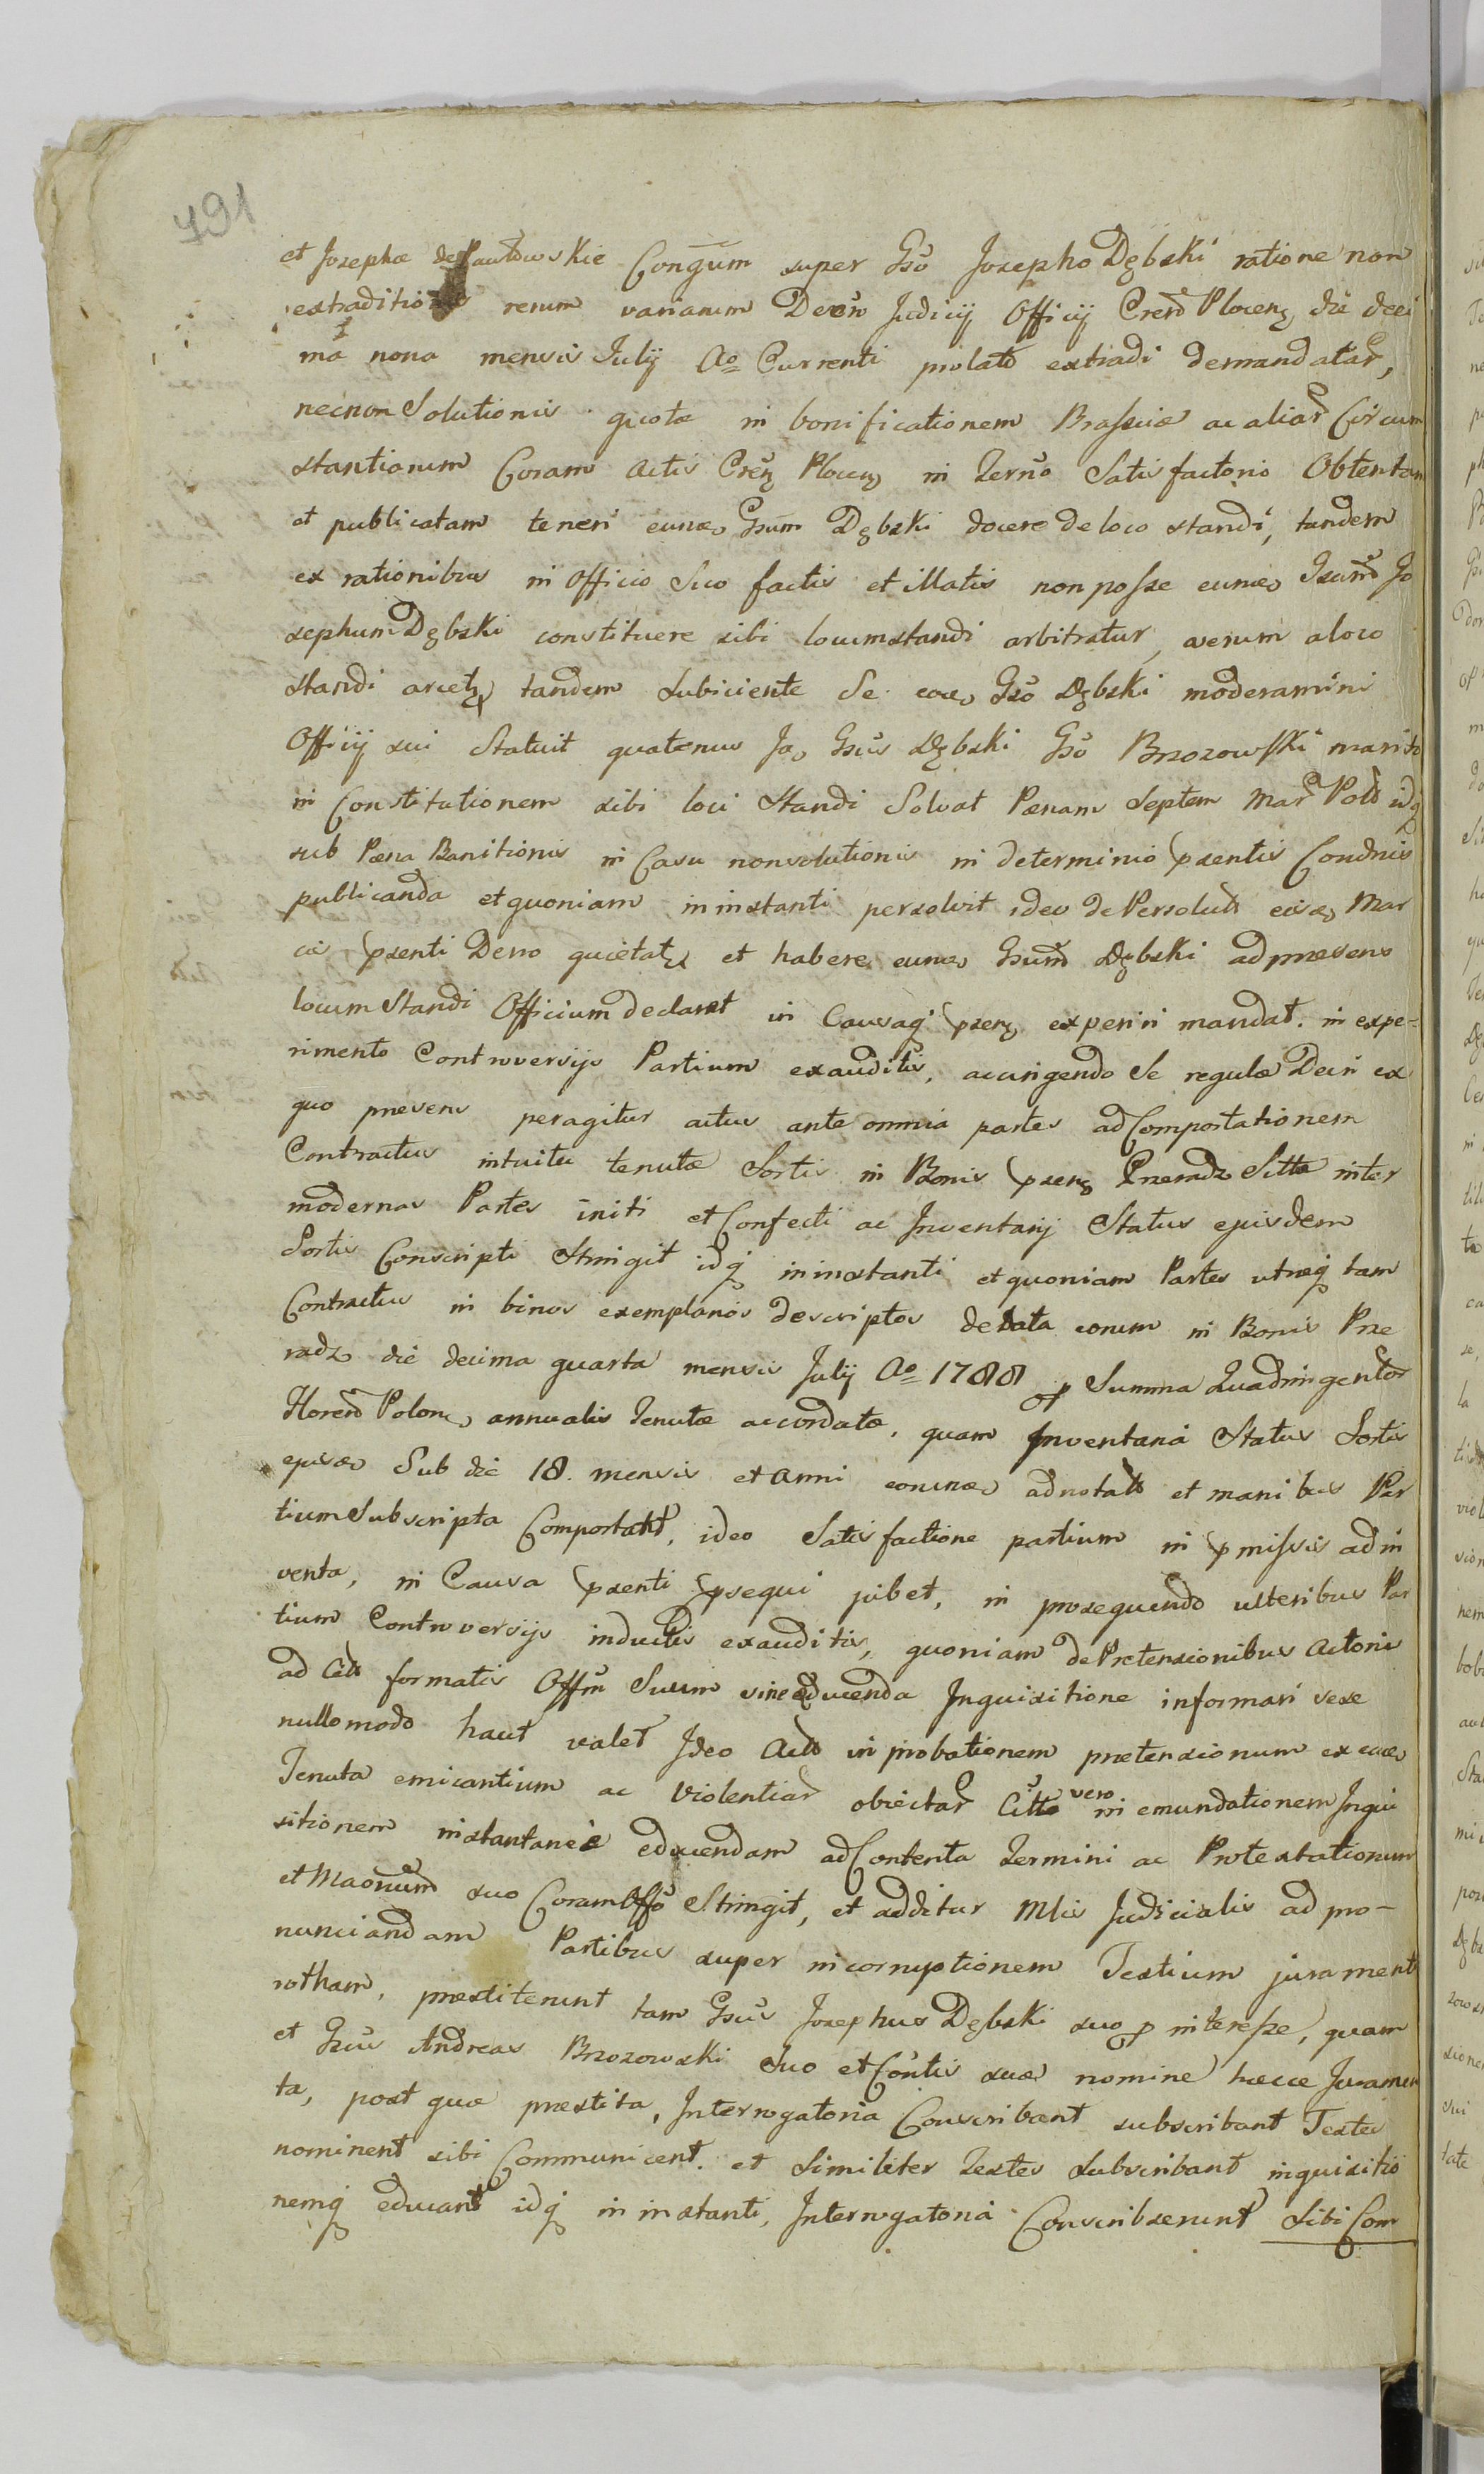 791
et Josephæ de Pawłowskie Congum super Gso Josepho Dębski ratione non
extraditionis rerum variarum Decro Judicij Officij Cren Plocen die deci
ma nona mensis Julij Ao Currenti prolato extradi demandatar,
necnon Solutionis quotæ in bonificationem Brasseæ ac aliar Circum
stantiarum Coram Actis Cren Plocen in Termo Satisfactorio Obtentam
et publicatam teneri eund Gsum Dębski docere de loco standi, tandem
ex rationibus in Officio Suo factis et illatis non posse eund Gsum Jo
sephum Dębski constituere sibi locum standi arbitratur, verum a loco
standi arcet, tandem Subiiciente Se eod Gso Dębski moderamini
Officij sui Statuit quatenus Gsus Dębski Gso Brzozowski marito
in Constitutionem sibi loci Standi Solvat Pænam Septem Mar Pol idq
sub Pæna Banitionis in Casu nonsolutionis in determinio pxentis Condnis
publicanda et quoniam in instanti persolvit ideo de Persolut eisd Mar
cis pxenti Decro quietat et habere eund Gsum Dębski ad præsens
locum Standi Officium declarat in Causaq pxen experiri mandat. in expe-
rimento Controversijs Partium exauditis, accingendo Se regulæ Decri ex
quo præsens peragitur actus ante omnia partes ad Comportationem
Contractus intuitu tenutæ Sortis in Bonis pxen Przeradz Sitta inter
modernas Partes initi et Confecti ac Inventarij Status ejusdem
Sortis Conscripti Stringit idq in instanti et quoniam Partes utræq tam
Contractus in binis exemplaris descriptos de data eorum in Bonis Prze
radz die decima quarta mensis Julij Ao 1788 p Summa Quadringentor
Floren Polon annualis Tenutæ accordatæ, quam Inventaria Status Sortis
ejusd Sub die 18. mensis et Anni eorund adnotat et manibus Par
tium Subscripta Comportant, ideo Satisfactione partium in pmissis adin
venta, in Causa pxenti psequi jubet, in prosequendo ulteribus Par
tium Controversijs inductis exauditis, quoniam de Prætensionibus Actoris
ad Citt formatis Offm Suum sine educenda Inquisitione informari sese
nullo modo haut valet Ideo Act in probationem prætensionum ex ead
Tenuta emicantium ac Violentiar obiectar Citto vero in emundationem Inqui
sitionem instantanee educendam ad Contenta Termini ac Protestationum
et Maonum suo Coram Offo Stringit, et additur Mlis Judicialis ad pro-
nunciandam Partibus super incorruptionem Testium jurament
rotham, præstiterunt tam Gsus Josephus Dębski suo p interesse, quam
et Gsus Andreas Brzozowski Suo et Contis suæ nomine hæcce Juramen
ta, post quæ præstita, Interrogatoria Conscribant subscribant Testes
nominent sibi Communicent. et Similiter Testes Subscribant inquisitio
nemq educant idq in instanti, Interrogatoria Conscribserunt Sibi Com